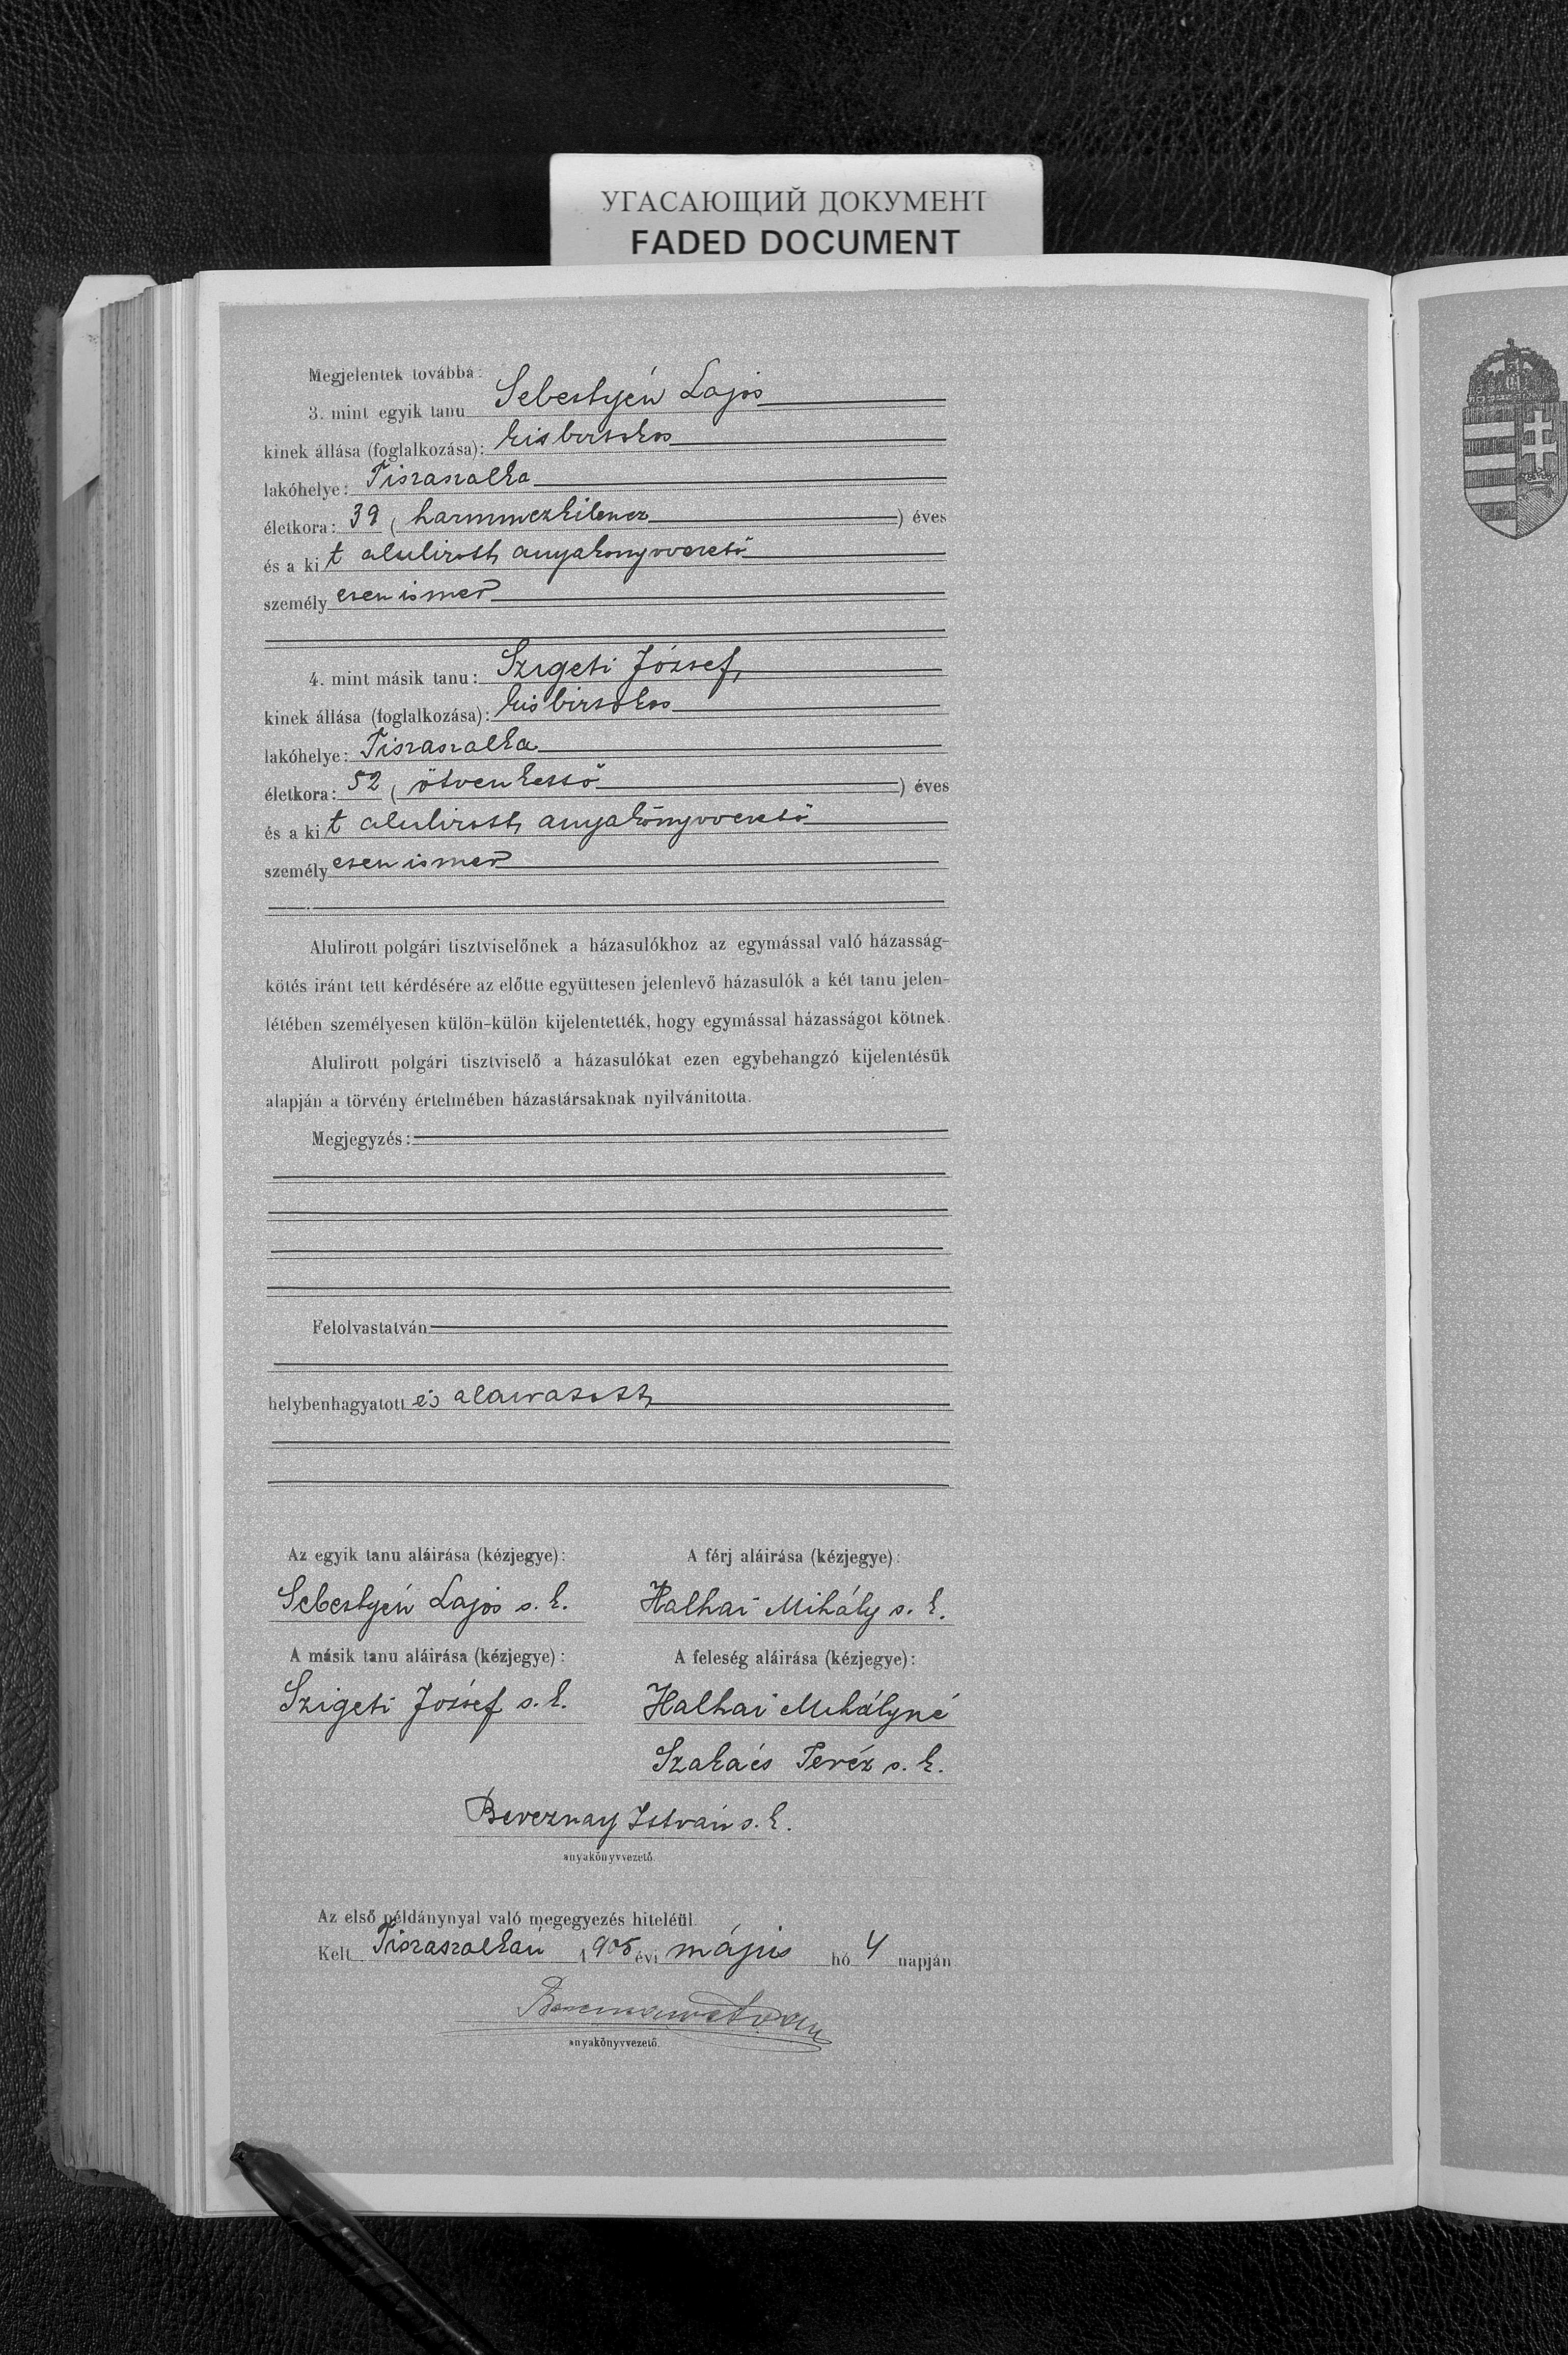 УГАСАЮЩИЙ ДОКУМЕНТ
FADED DOCUMENT
Megjelentek továbbá:
3. mint egyik tanu Sebestyén Lajos
kinek állása (foglalkozása): kisbirtokos
lakóhelye: Tiszaszalka
életkora: 39 (harminczkilencz) éves
és a kit alulirott anyakönyvvezető
személyesen ismer
4. mint másik tanu: Szigeti József,
kinek állása (foglalkozása): kisbirtokos
lakóhelye: Tiszaszalka
életkora: 52 (ötvenkettő) éves
és a kit alulirott anyakönyvvezető
személyesen ismer
Alulirott polgári tisztviselőnek a házasulókhoz az egymással való házasság-
kötés iránt tett kérdésére az előtte együttesen jelenlevő házasulók a két tanu jelen-
létében személyesen külön-külön kijelentették, hogy egymással házasságot kötnek.
Alulirott polgári tisztviselő a házasulókat ezen egybehangzó kijelentésük
alapján a törvény értelmében házastársaknak nyilvánitotta.
Megjegyzés:
Felolvastatván
helybenhagyatott és aláiratott
Az egyik tanu aláirása (kézjegye): A férj aláirása (kézjegye):
Sebestyén Lajos s. k. Halhai Mihály s. k.
A másik tanu aláirása (kézjegye): A feleség aláirása (kézjegye):
Szigeti József s. k. Halhai Mihályné
Szakács Teréz s. k.
Bereznay István s. k.
anyakönyvvezető.
Az első példánynyal való megegyezés hiteléül.
Kelt Tiszaszalkán 1905 évi május hó 4 napján
anyakönyvvezető.